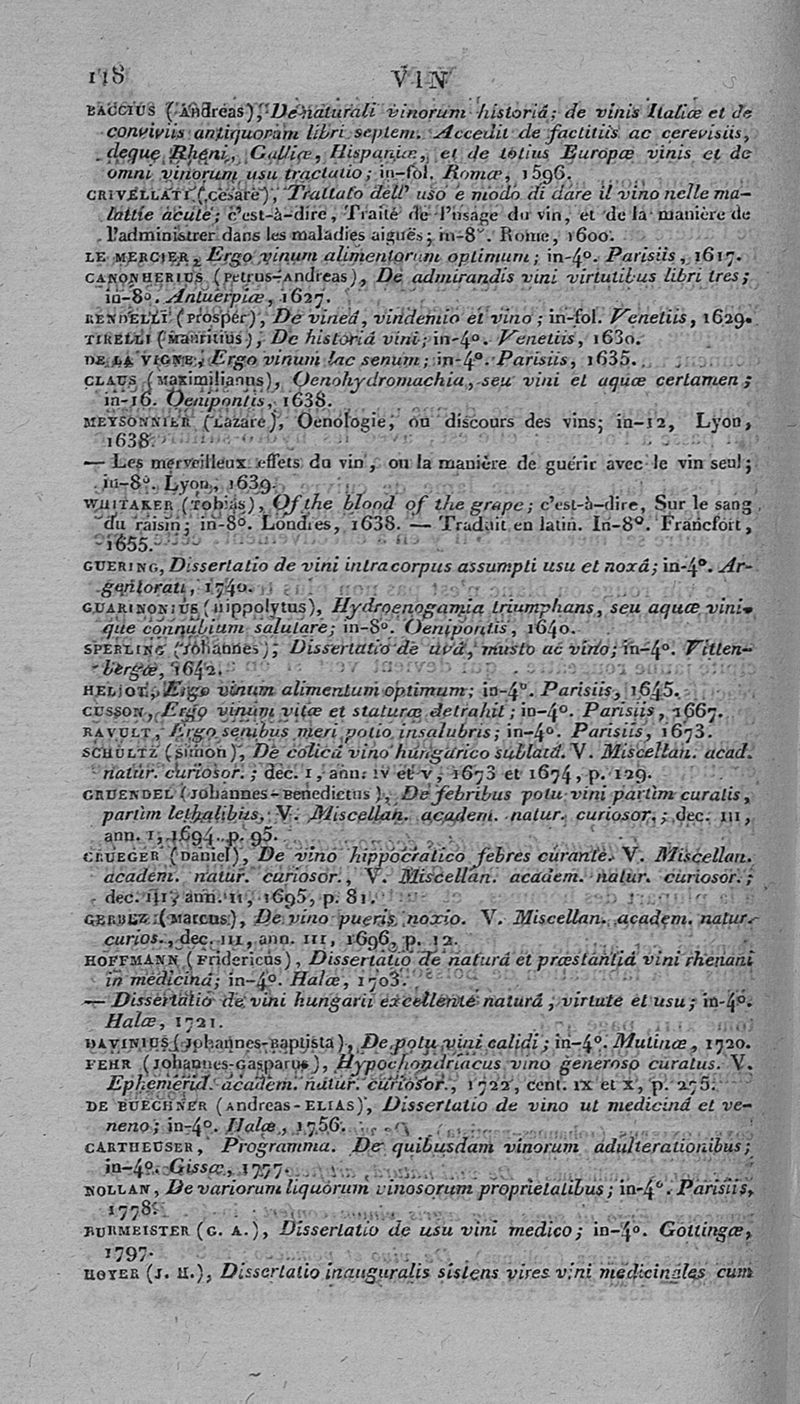 118 VIN
BACCIUS (Andréas), De naturali vinorum historiâ; de vinis Italiæ et de
conviviis antiquorum libri septem. Accedit de factitiis ac cerevisiis,
deque Rheni, Galliæ, Hispaniæ, et de totius Europæ vinis et de
omni vinorum usu tractatio; in-fol. Romæ, 1596.
CRIVELLATI (César), Trattato dell' uso e modo di dare il vino nelle ma-
lattie acute; c'est-à-dire, Traité de l'usage du vin, et de la manière de
l'administrer dans les maladies aiguës; in-8°. Rome, 1600.
LE MERCIER, Ergo vinum alimentorum optimum; in-4°. Parisiis, 1617.
CANONHERIUS (Petrus-Andreas), De admirandis vini virtutibus libri tres;
in-8°. Antuerpiæ, 1627.
RENDELLI (Prosper), De vineâ, vindemio et vino; in-fol. Venetiis, 1629.
TIRELLI (Mauritius), De historiâ vini; in-4°. Venetiis, 1630.
DE LA VIGNE, Ergo vinum lac senum; in-4°. Parisiis, 1635.
CLAUS (Maximilianus), Oenohydromachia, seu vini et aquæ certamen;
in-16. Oenipontis, 1638.
MEYSONNIER (Lazare), Oenologie, ou discours des vins; in-12, Lyon,
1638.
— Les merveilleux effets du vin, ou la manière de guérir avec le vin seul;
in-8°. Lyon, 1639.
WHITAKER (Tobias), Of the blood of the grape; c'est-à-dire, Sur le sang
du raisin; in-8°. Londres, 1638. — Traduit en latin. In-8°. Francfort,
1655.
GUERING, Dissertatio de vini intra corpus assumpti usu et noxâ; in-4°. Ar-
gentorati, 1740.
GUARINONIUS (Hippolytus), Hydroenogamia triumphans, seu aquæ vini-
que connubium salutare; in-8°. Oenipontis, 1640.
SPERLING (Johannes), Dissertatio de uvâ, musto ac vino; in-4°. Vitten-
bergæ, 1642.
HELJOT, Ergo vinum alimentum optimum; in-4°. Parisiis, 1645.
CUSSON, Ergo vinum vitæ et staturæ detrahit; in-4°. Parisiis, 1667.
RAVULT, Ergo senibus meri potio insalubris; in-4°. Parisiis, 1673.
SCHULTZ (Simon), De colicâ vino hungarico sublatâ. V. Miscellan. acad.
natur. curiosor.; déc. I, ann. IV et V, 1673 et 1674, p. 129.
GRUENDEL (Johannes-Benedictus), De febribus potu vini partim curatis,
partim lethalibus. V. Miscellan. academ. natur. curiosor.; dec. III,
ann. I, 1694. p. 95.
CRUEGER (Daniel), De vino hippocratico febres curante. V. Miscellan.
academ. natur. curiosor., V. Miscellan. academ. natur. curiosor.;
dec. III, ann. II, 1695, p. 81.
GERBEZ (Marcus), De vino pueris noxio. V. Miscellan. academ. natur.
curios., dec. III, ann. III, 1696, p. 12.
HOFFMANN (Fridericus), Dissertatio de naturâ et præstantiâ vini rhenani
in medicinâ; in-4°. Halæ, 1703.
— Dissertatio de vini hungarii excellente naturâ, virtute et usu; in-4°.
Halæ, 1721.
DAVINIUS (Johannes-Baptista), De potu vini calidi; in-4°. Mutinæ, 1720.
FEHR (Johannes-Gasparus), Hypochondriacus vino generoso curatus. V.
Ephemerid. academ. natur. curiosor., 1722, cent. IX et X, p. 275.
DE BUECHNER (Andreas-ELIAS), Dissertatio de vino ut medicinâ et ve-
neno; in-4°. Halæ, 1756.
CARTHEUSER, Programma. De quibusdam vinorum adulterationibus;
in-4°. Gissæ, 1777.
NOLLAN, De variorum liquorum vinosorum proprietatibus; in-4°. Parisiis,
1778.
BURMEISTER (G. A.), Dissertatio de usu vini medico; in-4°. Gottingæ,
1797.
HOYER (J. H.), Dissertatio inauguralis sistens vires vini medicinales cum